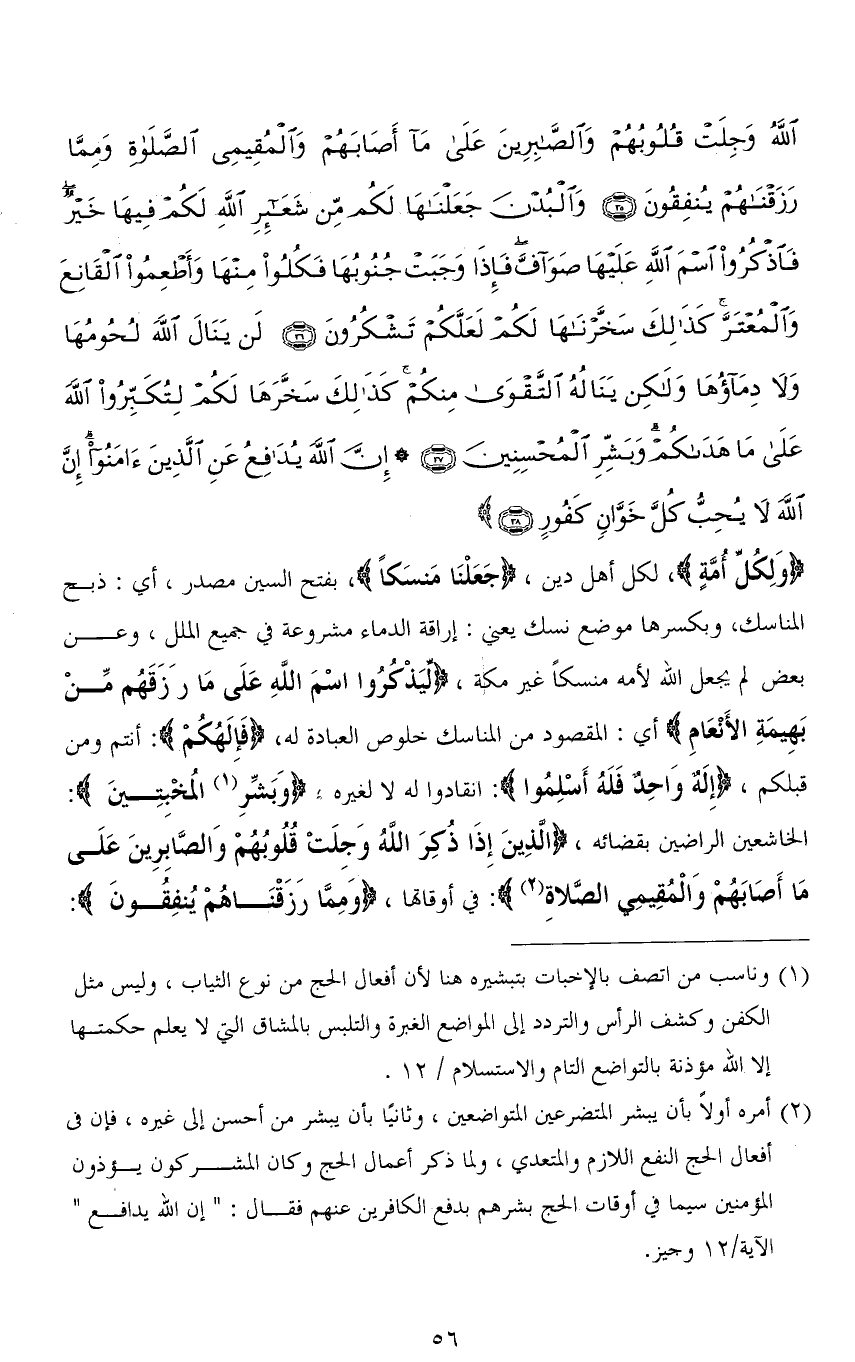 ٱللَّهُ وَجِلَتۡ قُلُوبُهُمۡ وَٱلصَّٰبِرِينَ عَلَىٰ مَآ أَصَابَهُمۡ وَٱلۡمُقِيمِى ٱلصَّلَوٰةِ وَمِمَّا
رَزَقۡنَٰهُمۡ يُنفِقُونَ ﴿٣٥﴾ وَٱلۡبُدۡنَ جَعَلۡنَٰهَا لَكُم مِّن شَعَٰٓئِرِ ٱللَّهِ لَكُمۡ فِيهَا خَيۡرٞۖ
فَٱذۡكُرُواْ ٱسۡمَ ٱللَّهِ عَلَيۡهَا صَوَآفَّۖ فَإِذَا وَجَبَتۡ جُنُوبُهَا فَكُلُواْ مِنۡهَا وَأَطۡعِمُواْ ٱلۡقَانِعَ
وَٱلۡمُعۡتَرَّۚ كَذَٰلِكَ سَخَّرۡنَٰهَا لَكُمۡ لَعَلَّكُمۡ تَشۡكُرُونَ ﴿٣٦﴾ لَن يَنَالَ ٱللَّهَ لُحُومُهَا
وَلَا دِمَآؤُهَا وَلَٰكِن يَنَالُهُ ٱلتَّقۡوَىٰ مِنكُمۡۚ كَذَٰلِكَ سَخَّرَهَا لَكُمۡ لِتُكَبِّرُواْ ٱللَّهَ
عَلَىٰ مَا هَدَىٰكُمۡۗ وَبَشِّرِ ٱلۡمُحۡسِنِينَ ﴿٣٧﴾ * إِنَّ ٱللَّهَ يُدَٰفِعُ عَنِ ٱلَّذِينَ ءَامَنُوٓاْۗ إِنَّ
ٱللَّهَ لَا يُحِبُّ كُلَّ خَوَّانٖ كَفُورٍ ﴿٣٨﴾ ﴾
﴿وَلِكُلِّ أُمَّةٍ﴾، لكل أهل دين ، ﴿جَعَلْنَا مَنسَكاً﴾، بفتح السين مصدر ، أي : ذبح
المناسك، وبكسرها موضع نسك يعني : إراقة الدماء مشروعة في جميع الملل ، وعن
بعض لم يجعل الله لأمه منسكاً غير مكة ، ﴿لِّيَذْكُرُوا اسْمَ اللَّهِ عَلَى مَا رَزَقَهُم مِّنْ
بَهِيمَةِ الأَنْعَامِ﴾ أي : المقصود من المناسك خلوص العبادة له، ﴿فَإِلَهُكُمْ﴾: أنتم ومن
قبلكم ، ﴿إِلَهٌ وَاحِدٌ فَلَهُ أَسْلِمُوا﴾: انقادوا له لا لغيره ، ﴿وَبَشِّرِ(١) الْمُخْبِتِينَ﴾:
الخاشعين الراضين بقضائه ، ﴿الَّذِينَ إِذَا ذُكِرَ اللَّهُ وَجِلَتْ قُلُوبُهُمْ وَالصَّابِرِينَ عَلَى
مَا أَصَابَهُمْ وَالْمُقِيمِي الصَّلاةِ(٢)﴾: في أوقاتها ، ﴿وَمِمَّا رَزَقْنَاهُمْ يُنفِقُونَ﴾:
(١) وناسب من اتصف بالإخبات بتبشيره هنا لأن أفعال الحج من نوع الثياب ، وليس مثل
الكفن وكشف الرأس والتردد إلى المواضع الغبرة والتلبس بالمشاق التي لا يعلم حكمتها
إلا الله مؤذنة بالتواضع التام والاستسلام / ١٢ .
(٢) أمره أولاً بأن يبشر المتضرعين المتواضعين ، وثانيًا بأن يبشر من أحسن إلى غيره ، فإن فى
أفعال الحج النفع اللازم والمتعدي ، ولما ذكر أعمال الحج وكان المشركون يؤذون
المؤمنين سيما في أوقات الحج بشرهم بدفع الكافرين عنهم فقال : " إن الله يدافع "
الآية/١٢ وجيز.
٥٦